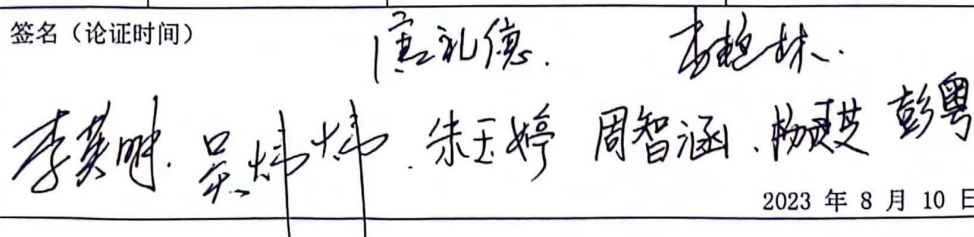 签名（论证时间）
唐礼德. 李艳林.
李英明. 吴炜炜. 朱玉婷 周智涵. 杨灵芝 彭粤
2023 年 8 月 10 日